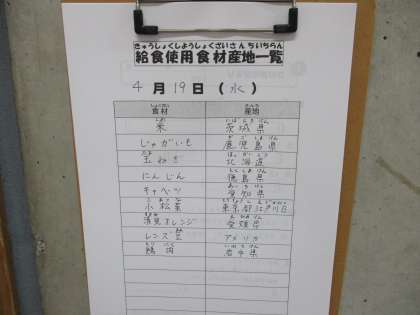 きゅうしょくしようしょくざいさんちいちらん
給食使用食材産地一覧
4月19日（水）
食材 産地
茨城県
じゃがいも 鹿児島県
玉ねぎ 北海道
にんじん 徳島県
キャベツ 愛知県
小松菜 東京都江戸川区
清見オレンジ 愛媛県
レンズ豆 アメリカ
鶏肉 岩手県